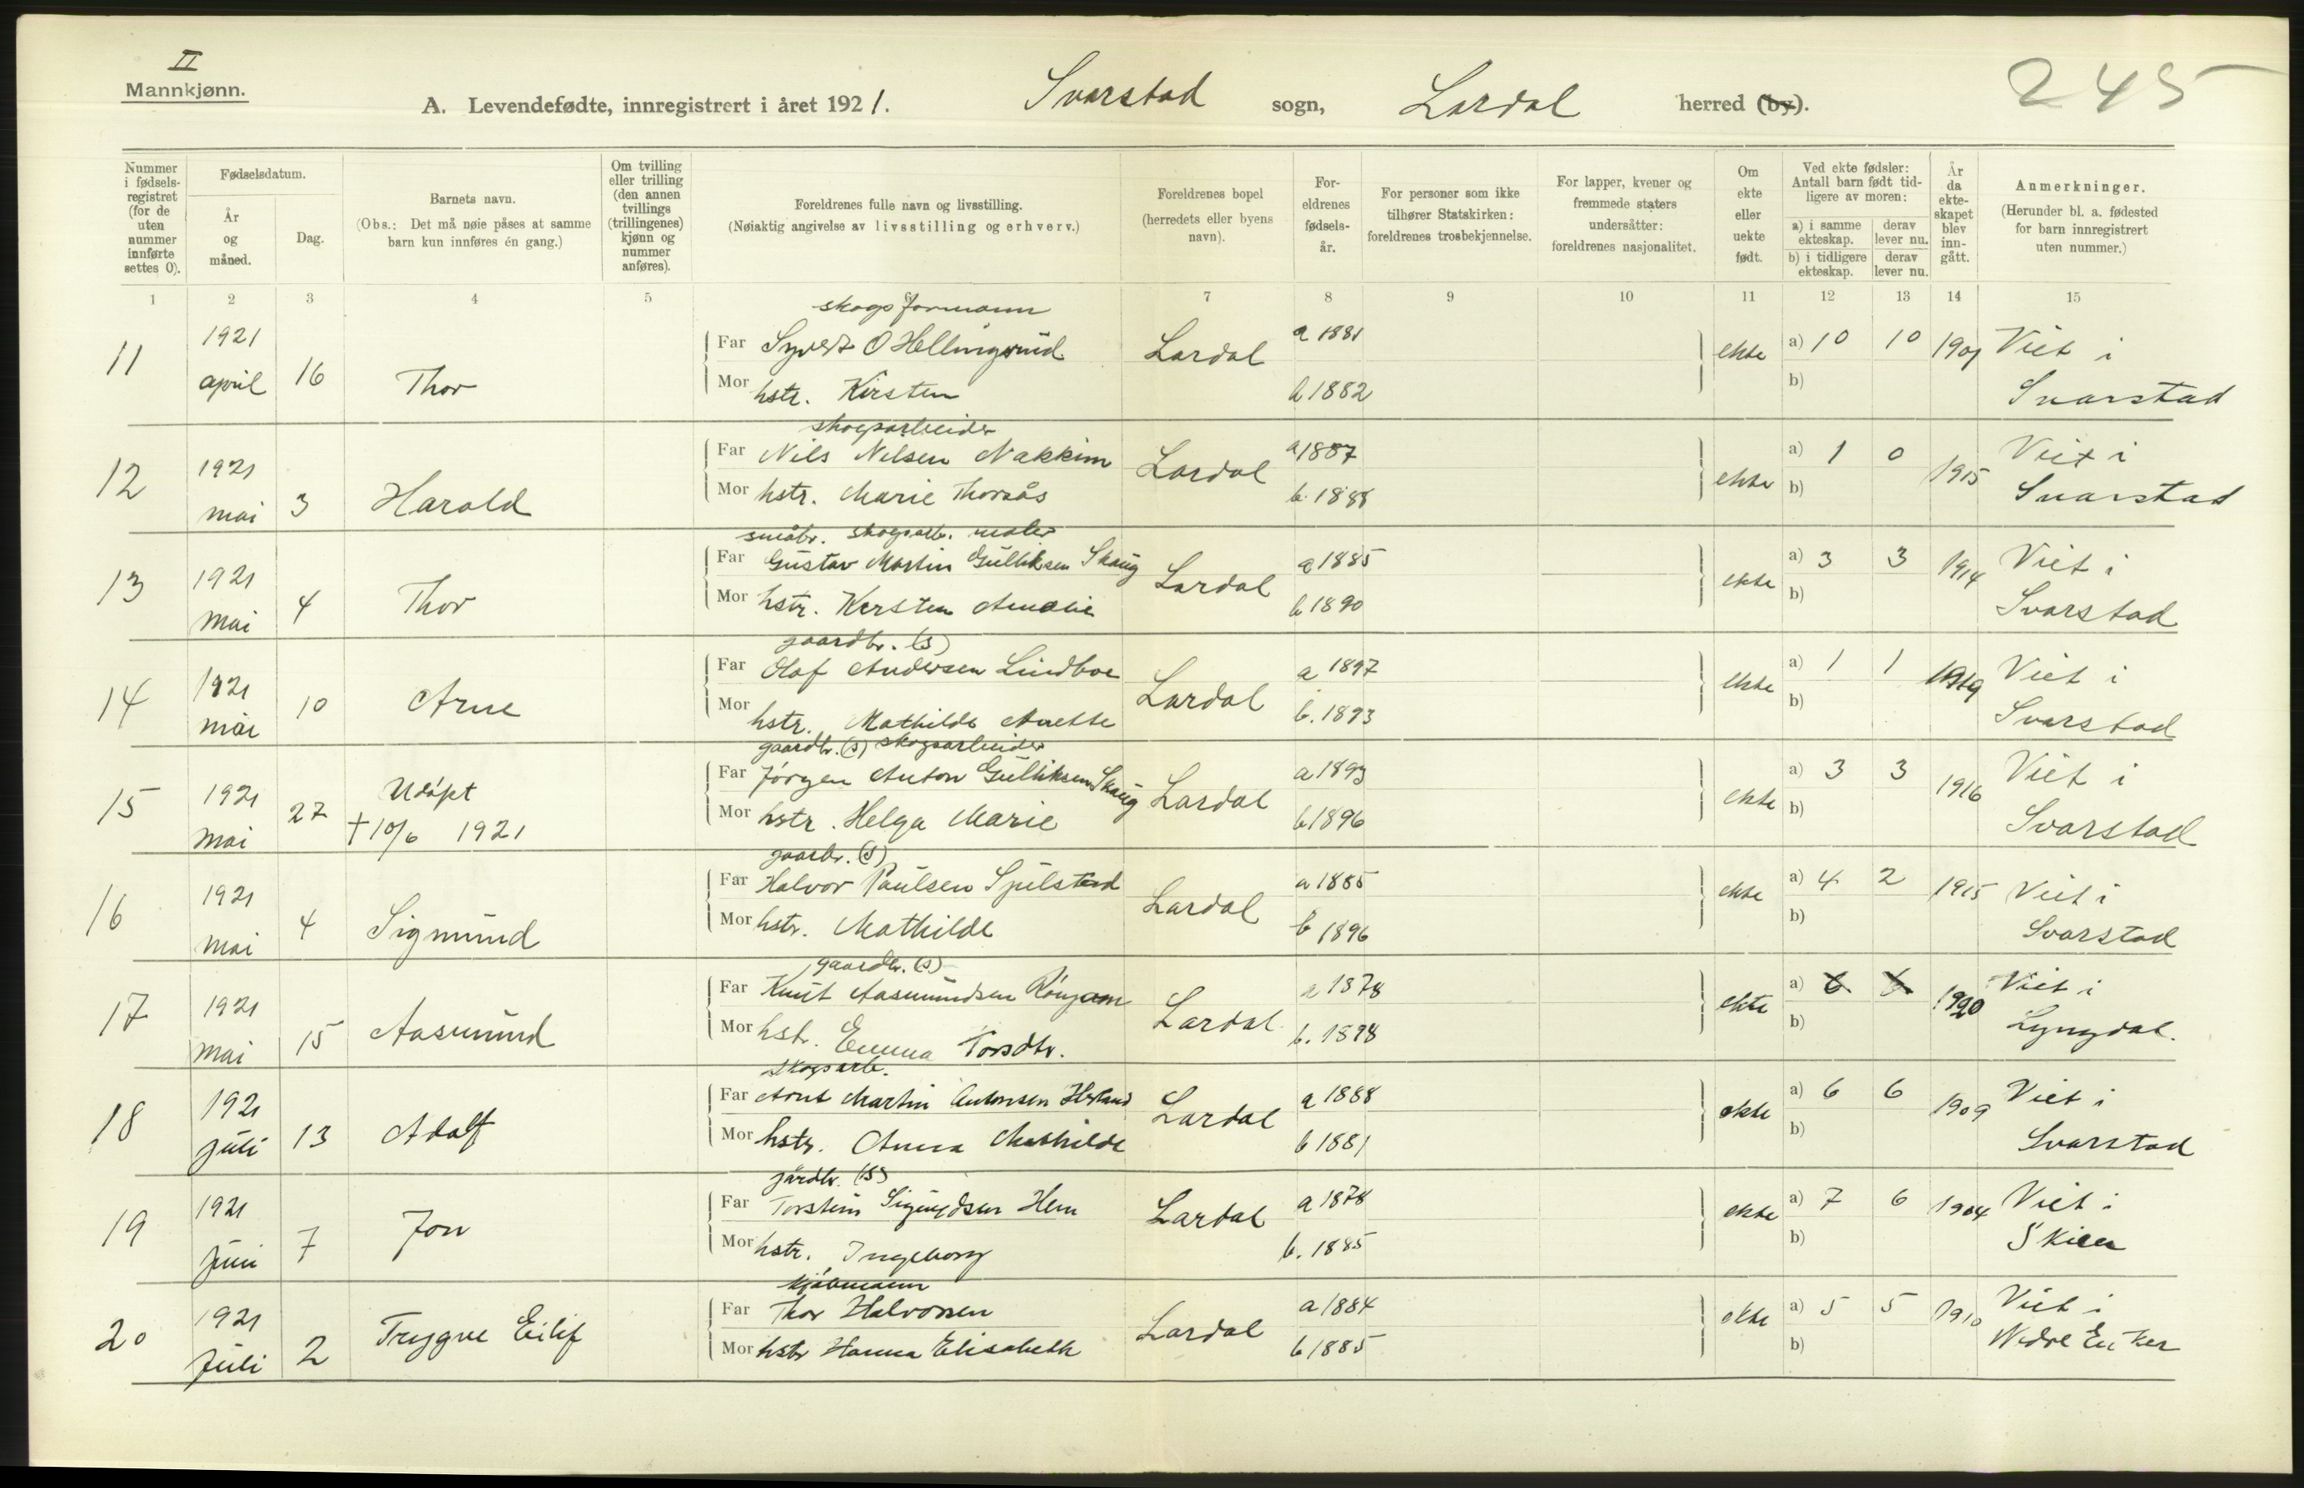 II
Mannkjønn.
A. Levendefødte, innregistrert i året 1921. Svarstad sogn, Lardal herred (by).
245
Nummer i fødselsregistret (for de uten nummer innførte settes 0).
Fødselsdatum.
År og måned.
Dag.
Barnets navn.
(Obs.: Det må nøie påses at samme barn kun innføres én gang.)
Om tvilling eller trilling (den annen tvillings (trillingenes) kjønn og nummer anføres).
Foreldrenes fulle navn og livsstilling.
(Nøiaktig angivelse av livsstilling og erhverv.)
Foreldrenes bopel (herredets eller byens navn).
Foreldrenes fødselsår.
For personer som ikke tilhører Statskirken: foreldrenes trosbekjennelse.
For lapper, kvener og fremmede staters undersåtter: foreldrenes nasjonalitet.
Om ekte eller uekte født.
Ved ekte fødsler: Antall barn født tidligere av moren:
a) i samme ekteskap. derav lever nu.
b) i tidligere ekteskap. derav lever nu.
År da ekteskapet blev inngått.
Anmerkninger.
(Herunder bl. a. fødested for barn innregistrert uten nummer.)
1 2 3 4 5 6 7 8 9 10 11 12 13 14 15
skogsformann
11 1921 april 16 Thor Far Syvert O Hellingsrud Lardal a 1881 ekte a) 10 10 1901 Viet i
Mor hstr. Kirsten b 1882 b) Svarstad
skogsarbeider
12 1921 mai 3 Harald Far Nils Nilsen Nakkim Lardal a 1887 ekte a) 1 0 1915 Viet i
Mor hstr. Marie Thorsås b. 1888 b) Svarstad
småbr. skogsarb. maler
13 1921 Mai 4 Thor Far Gustav Martin Gulliksen Skaug Lardal a 1885 ekte a) 3 3 1914 Viet i
Mor hstr. Kirsten Amalie b 1890 b) Svarstad
gaardbr. (s)
14 1921 mai 10 Arne Far Olaf Andersen Lindboe Lardal a 1897 ekte a) 1 1 1919 Viet i
Mor hstr. Mathilde Anette b. 1893 b) Svarstad
gaardbr. (s) skogsarbeider
15 1921 Mai 27 Udøpt Far Jørgen Anton Gulliksen Skaug Lardal a 1893 ekte a) 3 3 1916 Viet i
† 10/6 1921 Mor hstr. Helga Marie b 1896 b) Svarstad
gaarbr. (s)
16 1921 mai 4 Sigmund Far Halvor Paulsen Spilstad Lardal a 1885 ekte a) 4 2 1915 Viet i
Mor hstr. Mathilde b 1896 b) Svarstad
gaardbr. (s)
17 1921 mai 15 Aasmund Far Knut Aasmundsen Lardal a 1878 ekte a) 6 6 1920 Viet i
Mor hstr. Emma Torsdtr. b. 1898 b) Lyngdal.
skogsarb.
18 1921 juli 13 Adolf Far Arnt Martin Antonsen Lardal a 1888 ekte a) 6 6 1909 Viet i
Mor hstr. Anna Mathilde b 1881 b) Svarstad
gårdbr. (s)
19 1921 juni 7 Jon Far Torstein Sigurdsen Hem Lardal a 1878 ekte a) 7 6 1904 Viet i
Mor hstr. Ingeborg b. 1885 b) Skien
kjøbmann
20 1921 Juli 2 Trygve Eilif Far Thor Halvorsen Lardal a 1884 ekte a) 5 5 1910 Viet i
Mor hstr Hanna Elisabeth b 1885 b) Nedre Eiker